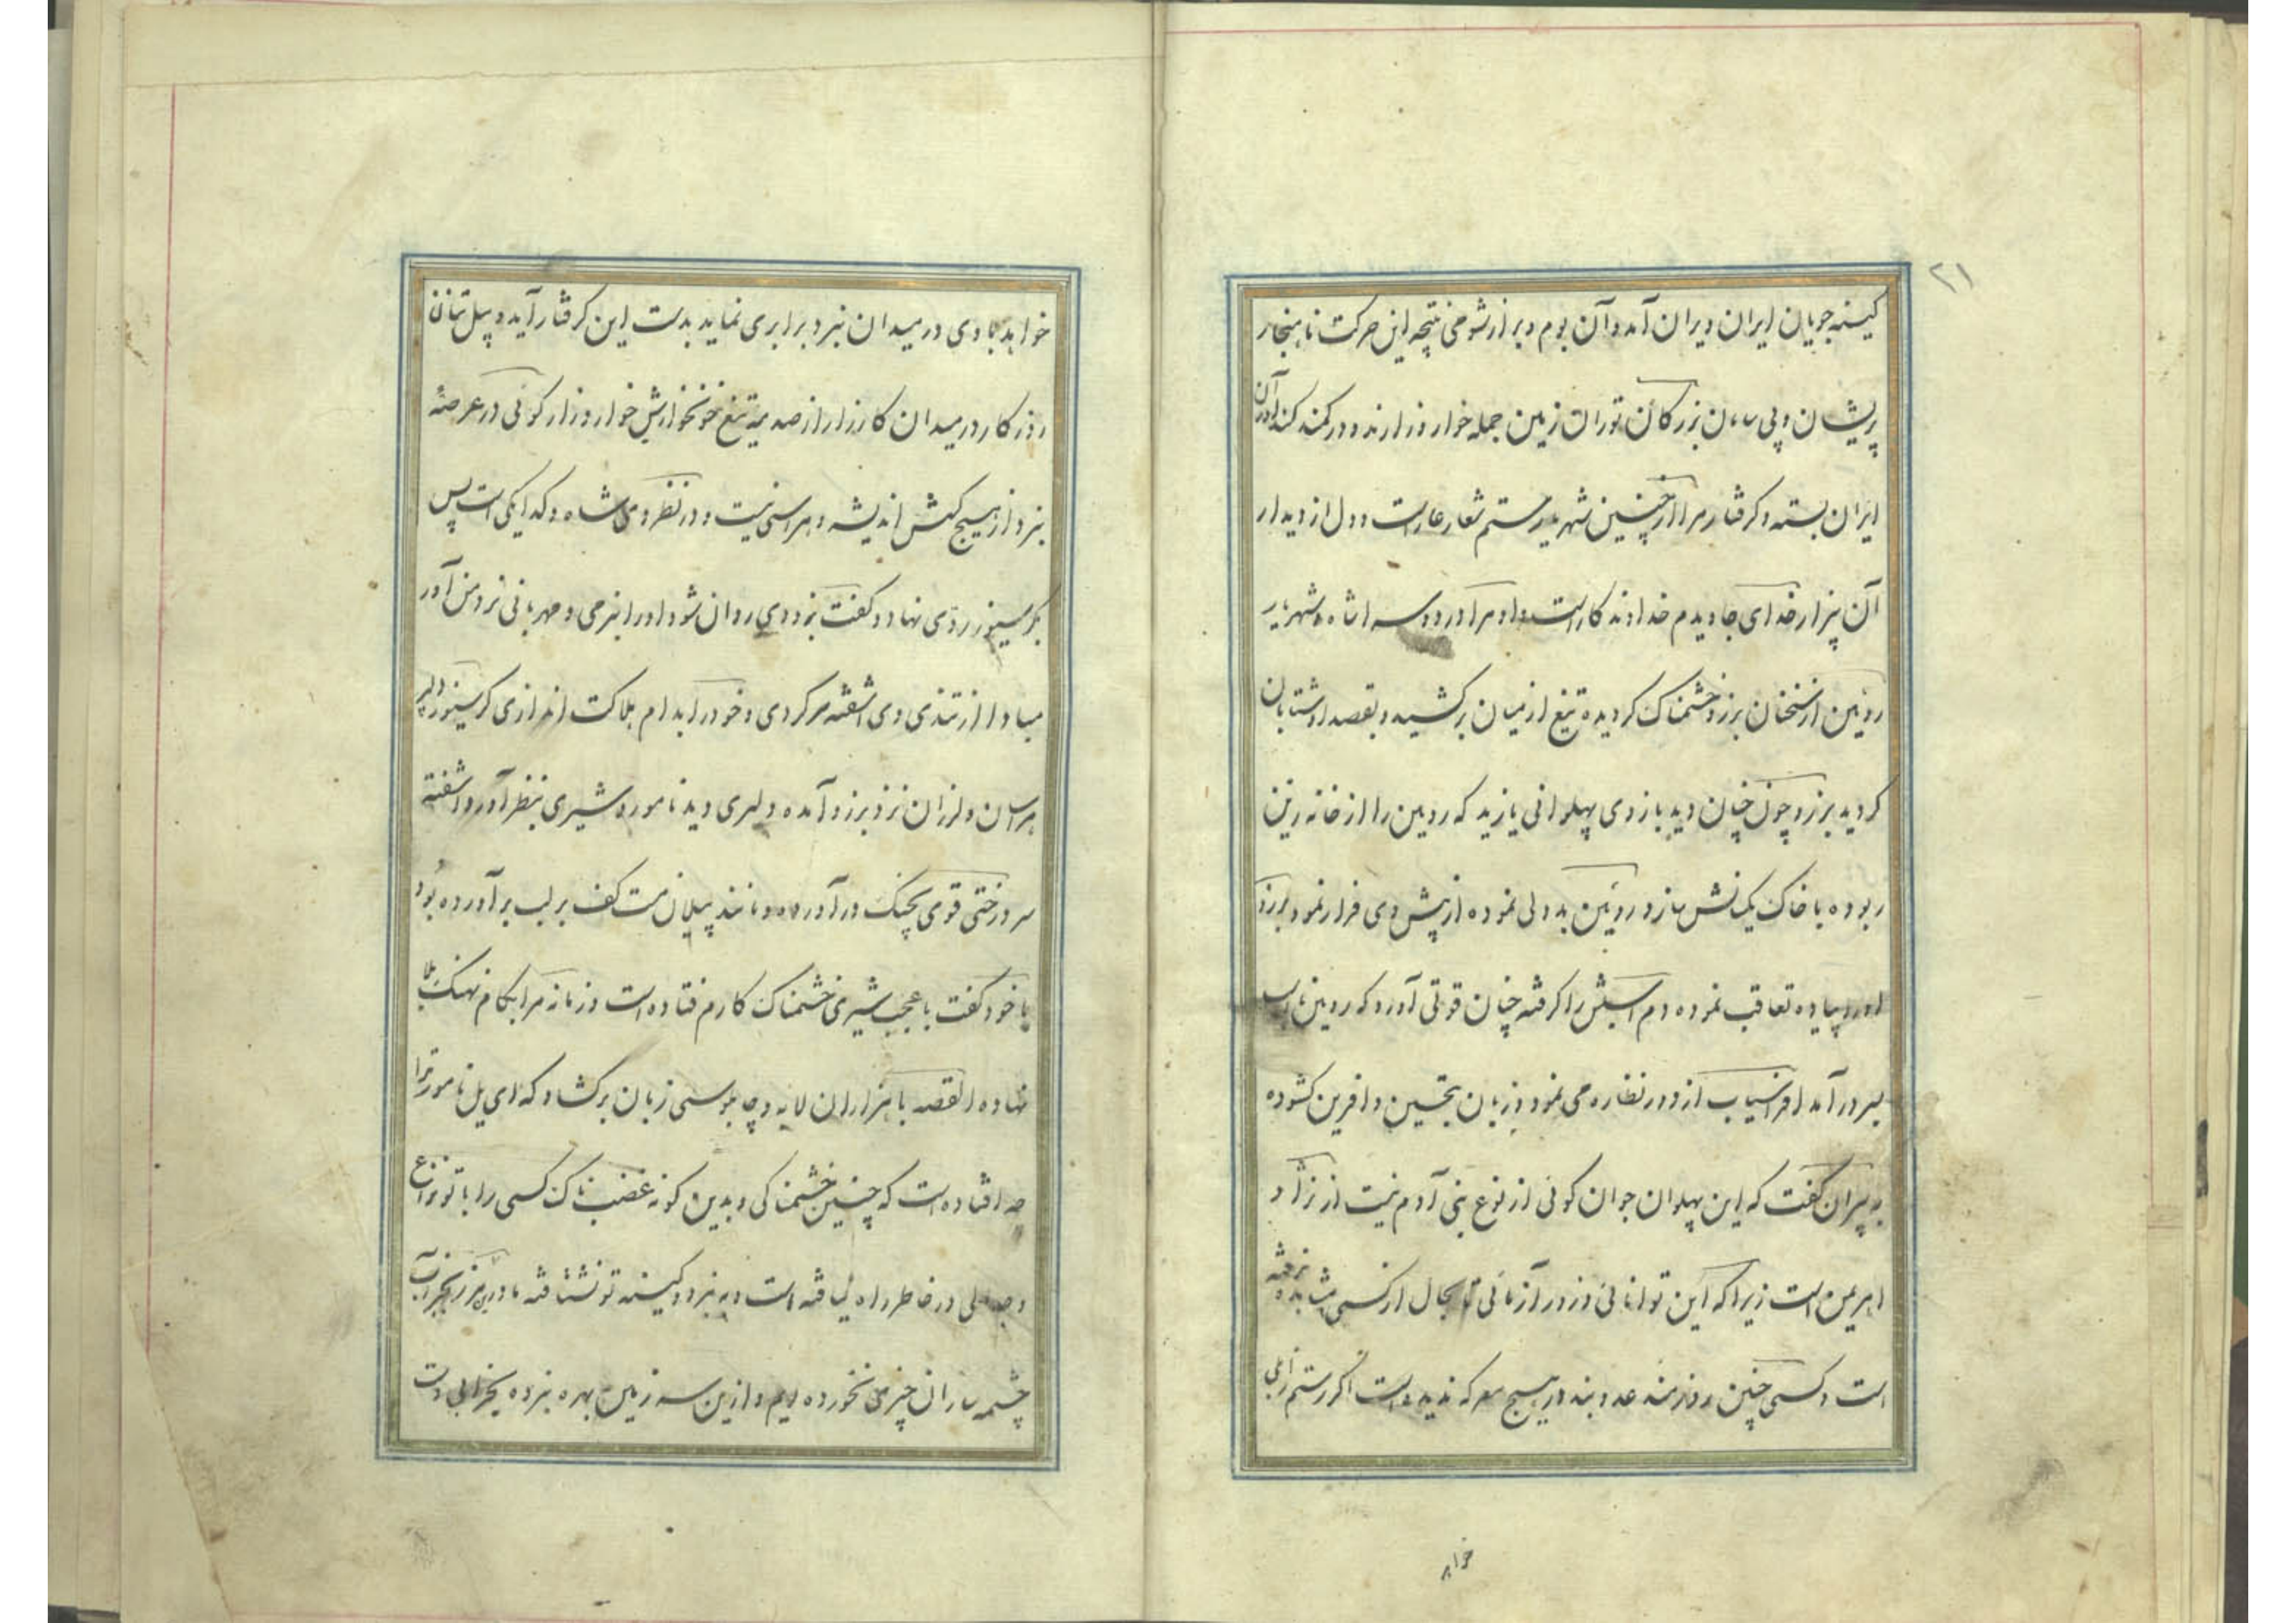 ۲۱
کینه جویان ایران ویران آمد و آن بوم و بر از شومی نتیجه این حرکت ناهنجار
پریشان و بی سامان بزرگان توران زمین جمله خوار و زارند و در کمند کندآوران
ایران بسته و گرفتار مرا از چنین شهریار ستم شعار عار است و دل از دیدار
آن بیزار خدای جاویدم خداوندگار است و او مرا
روئین از سخنان برزو خشمناک گردیده تیغ از میان برکشید و بقصد او شتابان
گردید برزو چون چنان دید بازوی پهلوانی یازید که روئین را از خانه زین
ربوده با خاک یکسانش سازد روئین بددلی نموده از پیش وی فرار نمود برزو
او را پیاده تعاقب نموده دم اسبش را گرفته چنان قوتی آورد که روئین با اسب
بسر درآمد افراسیاب از دور نظاره می نمود و زبان بتحسین و آفرین گشوده
به پیران گفت که این پهلوان جوان گوئی از نوع بنی آدم نیست از نژاد
اهریمن است زیرا که این توانائی و زورآزمائی تا بحال از کسی مشاهده نرفته
است و کسی چنین روزمند عدو بند در هیچ معرکه ندیده است اگر رستم زابلی
خواهد
خواهد با وی در میدان نبرد برابری نماید بدست این گرفتار آید و پیل تنان
روزگار در میدان کارزار از صدمه تیغ خونخوارش خوار و زار گوئی در عرصه
نبرد از هیچ کسش اندیشه و هراسی نیست و در نظر وی شاه و گدا یکی است پس
بگرسیوز روی نهاد و گفت بزودی روان شو و او را بنرمی و مهربانی نزد من آور
مبادا از تندی وی آشفته سر گردی و خود را بدام هلاکت اندازی گرسیوز دلیر
هراسان و لرزان نزد برزو آمده دلیری دید نامور و شیری بنظر آورد آشفته
سر درختی قوی بچنگ درآورده و مانند پیلان مست کف بر لب برآورده بود
با خود گفت با عجب شیری خشمناک کارم فتاده است و زمانه مرا بکام نهنگ بلا
نهاده القصه با هزاران لابه و چاپلوسی زبان برگشاد که ای یل نامور ترا
چه افتاده است که چنین خشمناکی و بدین گونه غضب ناک کسی را با تو نزاع
و جدلی در خاطر راه نیافته است و به نبرد و کینه تو نشتافته ما درین مرز بجز آب
چشمه ساران چیزی نخورده ایم و ازین سرزمین بهره نبرده بخرابی دست